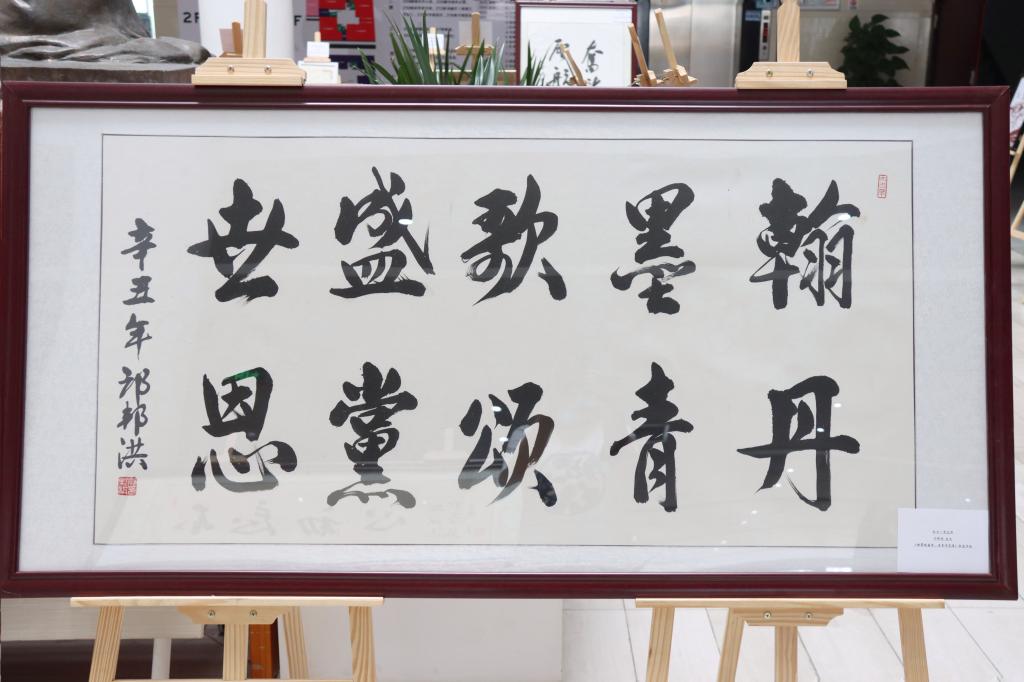 翰墨歌盛世
丹青颂黨恩
辛丑年邱邦洪
2F